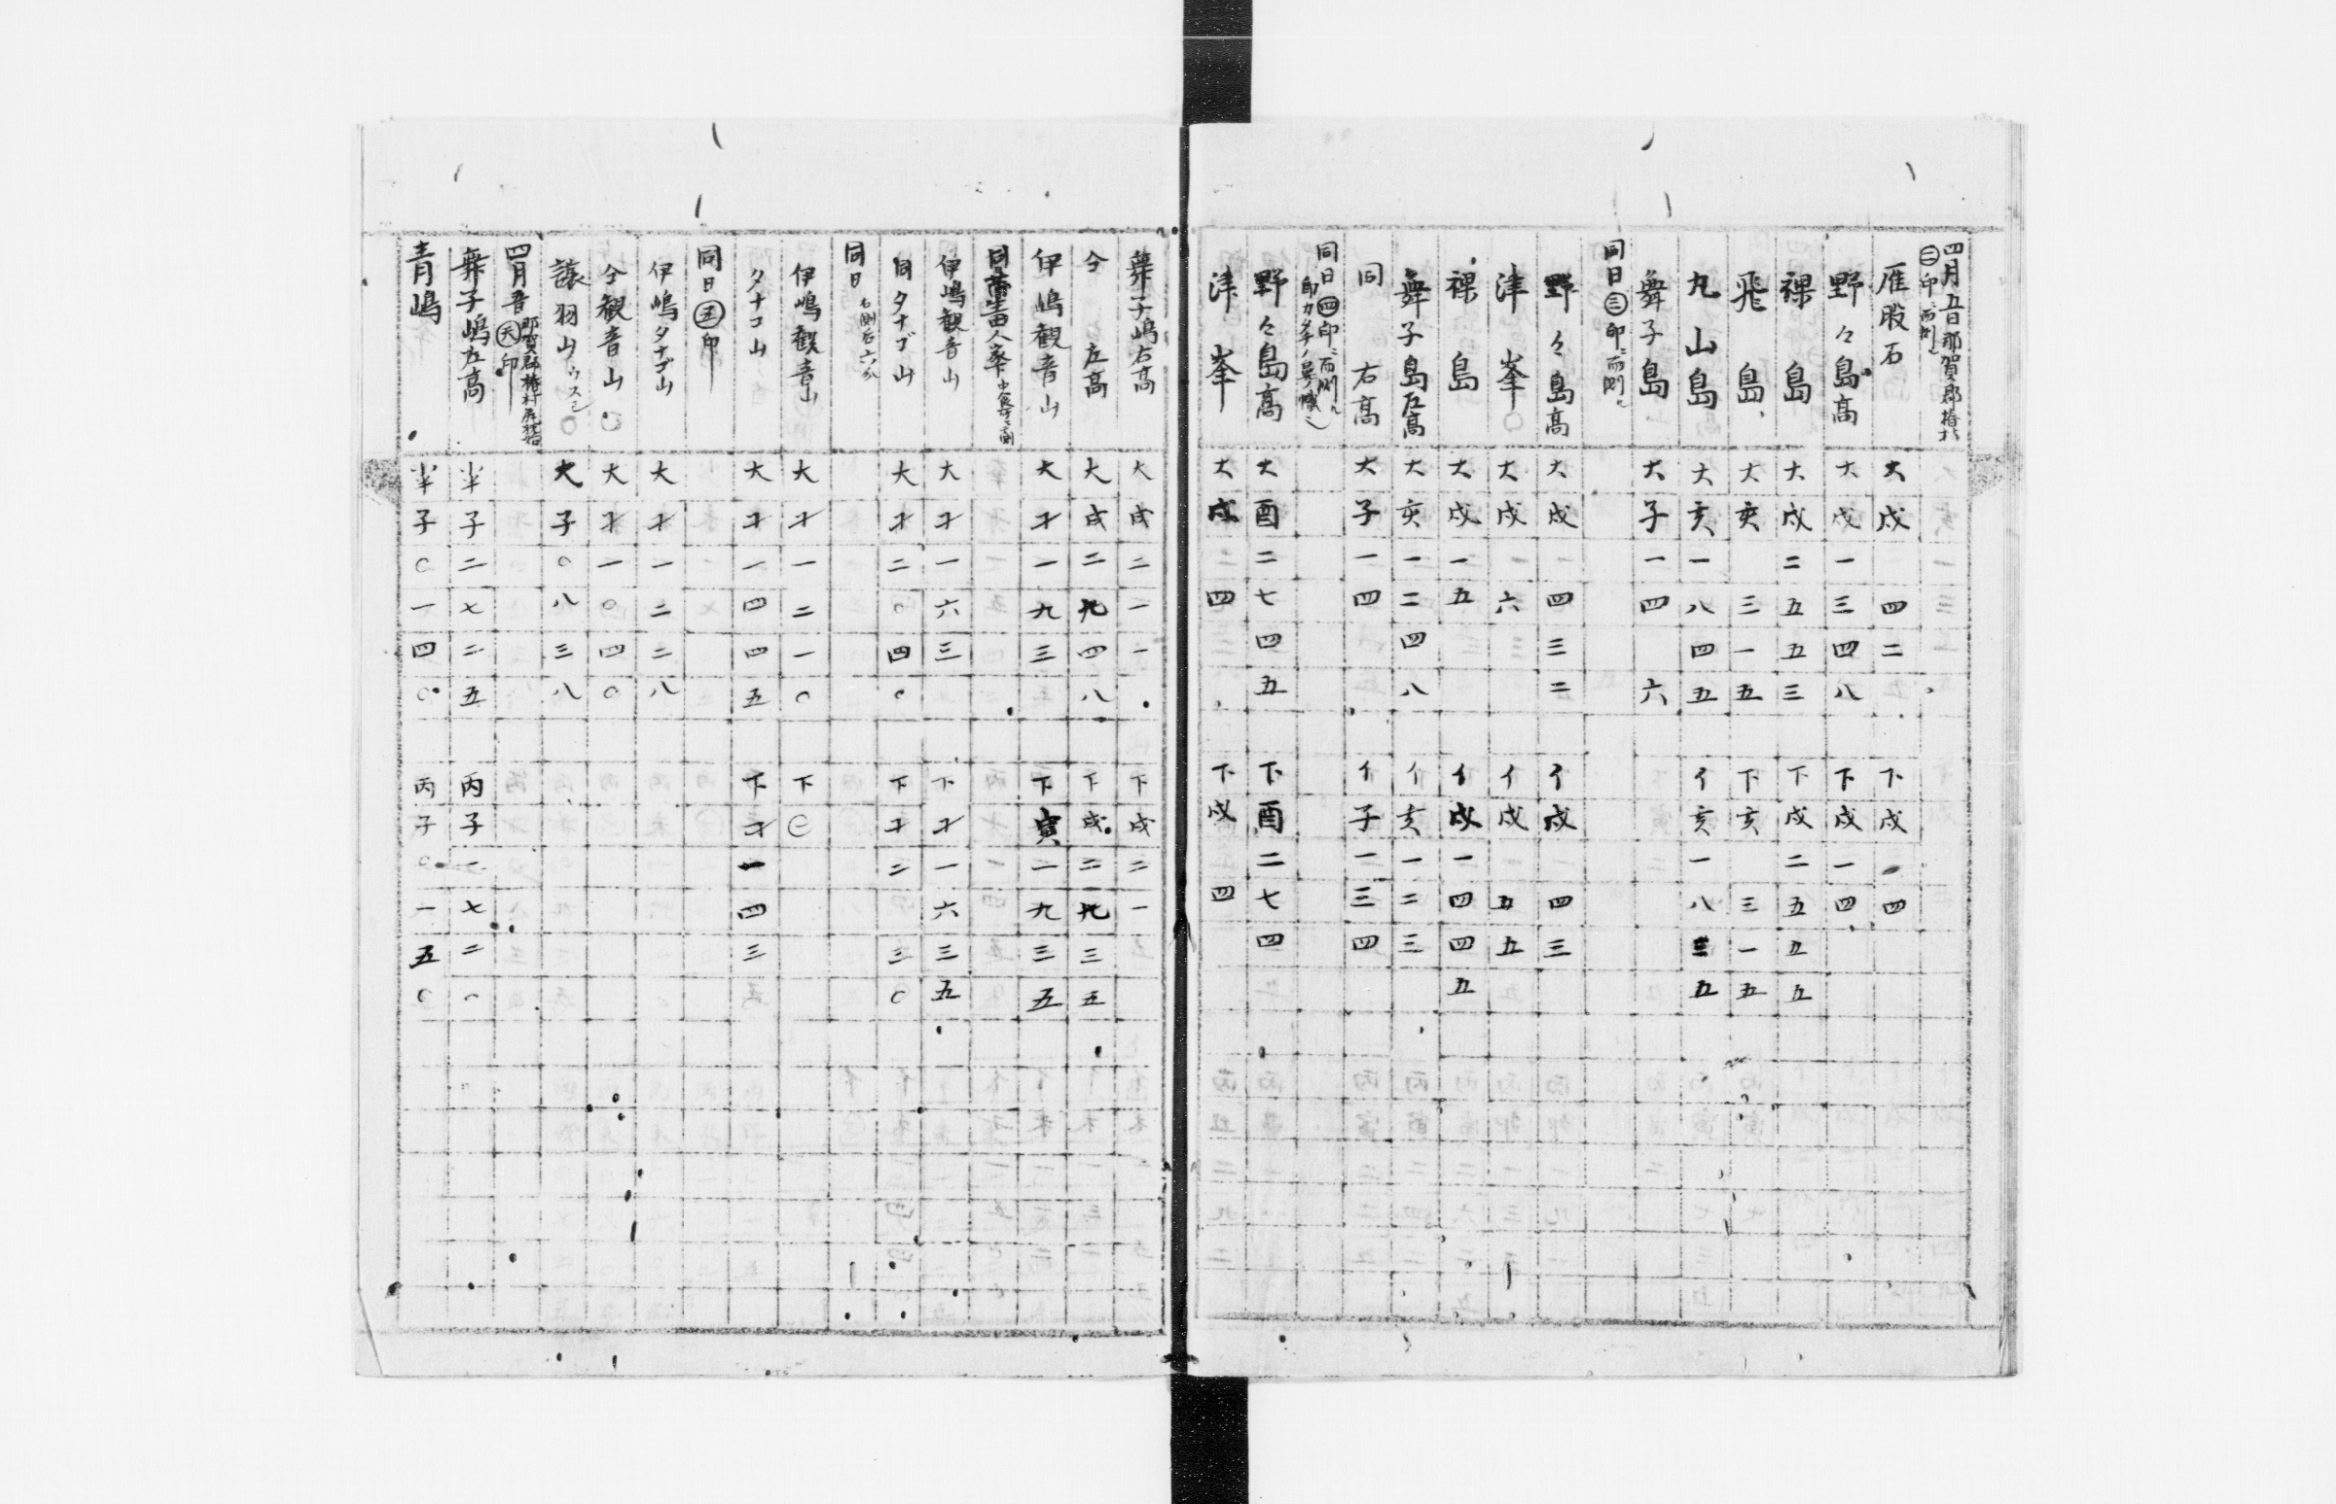 四月五日那賀郡椿
㊁印ニ而測
雁股石 大戌 四二 下戌 四
野々島高 大戌一三四八 下戌一四
裸島 大戌二五五三 下戌二五五五
飛島 大亥 三一五 下亥 三一五
丸山島 大亥一八四五 イ亥一八三五
舞子島 大子一四 六
同日㊂印ニ而測
野々島高 大戌 四三二 イ戌 四三
津峯〇 大戌 六 イ戌 五五
裸島 大戌一五 イ戌一四四五
舞子島左高 大亥一二四八 イ亥一二三
同 右高 大子一四 イ子一三四
同日㊃印ニ而測
野々島高 大酉二七四五 下酉二七四
津峯 大戌 四 下戌 四
舞子嶋右高 大戌二一一 下戌二一
仝 左高 大戌二九四八 下戌二九三五
伊嶋観音山 大寸一九三 下寅一九三五
伊嶋観音山 大寸一六三 下寸一六三五
同タナゴ山 大寸二〇四〇 下寸二 三〇
同日
伊嶋観音山 大寸一二一〇 下㊁
タナコ山 大寸一四四五 下寸一四三
同日㊄印
伊嶋タナゴ山 大寸一二二八
仝観音山〇 大寸一〇四〇
譲羽山ウスシ〇 大子〇八三八
四月
舞子嶋左高 半子二七二五 丙子二七二〇
青嶋 半子〇一四〇 丙子〇一五〇